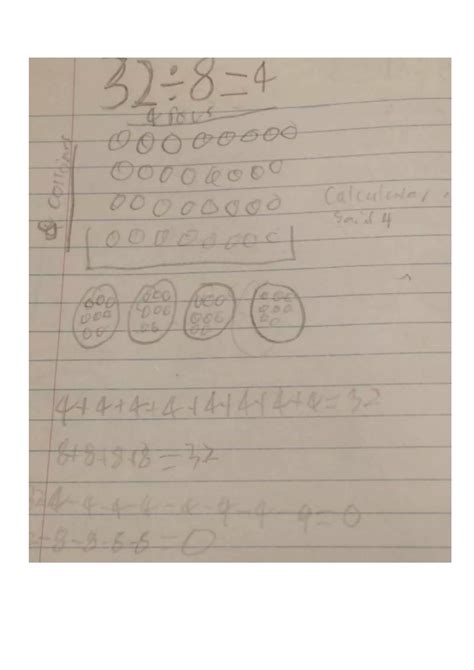 32÷8=4
4 rows
8
Calculator
said 4
4+4+4+4+4+4+4+4=32
8+8+8+8=32
32-4-4-4-4-4-4-4-4=0
-8-8-8-8=0